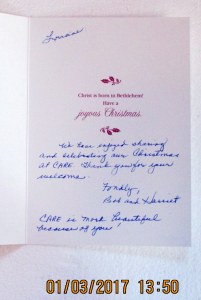 Lorraine
Christ is born in Bethlehem!
Have a
joyous Christmas.
We have enjoyed sharing
and celebrating our Christmas
at CARE. Thank you for your
welcome.
Fondly,
Bob and Harriet
CARE is more beautiful
because of you!
01/03/2017 13:50